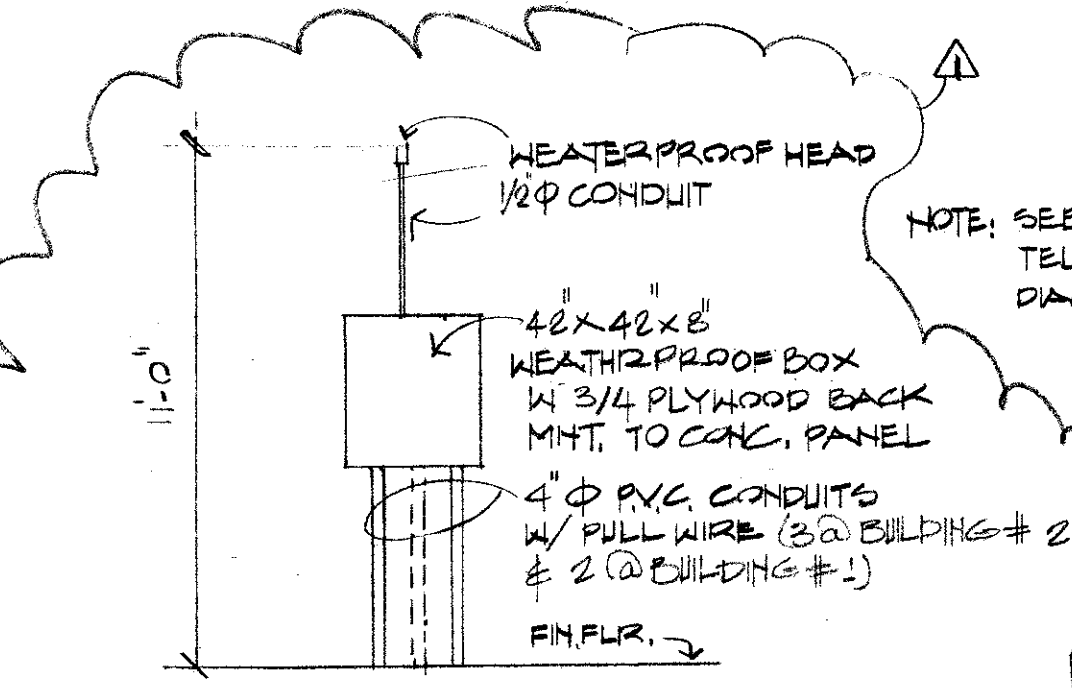 1
WEATERPROOF HEAD
1/2"Φ CONDUIT
NOTE: SEE
TEL
DIA
42"X42"X8"
WEATHRPROOF BOX
W 3/4 PLYWOOD BACK
MNT. TO CONC. PANEL
11'-0"
4"Φ P.V.C. CONDUITS
W/ PULL WIRE (3@ BUILDING # 2
& 2 @ BUILDING # 1)
FIN. FLR.